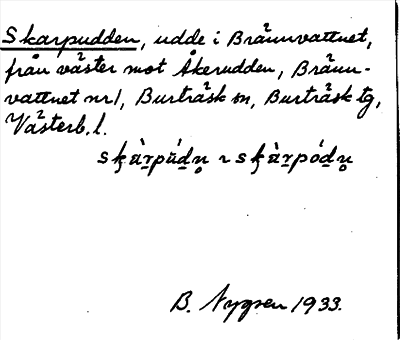 Skarpudden, udde i Brännvattnet,
från väster mot Åkerudden, Bränn-
vattnet nr 1, Burträsk sn, Burträsk tg,
Västerb. l.
B. Nygren 1933.